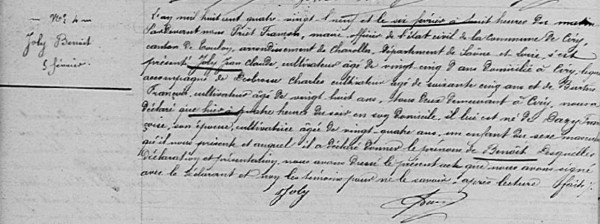 N° 4
Joly Benoît
5 février
L'an mil huit cent quatre vingt neuf et le six février à huit heures du matin
pardevant nous Friet François, maire, officier de l'état civil de la commune de
canton de Toulon, arrondissement de Charolles, département de Saône et Loire, s'est
présenté Joly Jean Claude, cultivateur âgé de vingt-cinq ans domicilié à
accompagné de Charles cultivateur âgé de soixante cinq ans et de
François, cultivateur âgé de vingt huit ans, tous deux demeurant à nous a
déclaré que hier à quatre heures du soir en son domicile, il lui est né de Dagey Fran
çoise, son épouse, cultivatrice âgée de vingt-quatre ans, un enfant du sexe masculin
qu'il nous présente et auquel il a déclaré donner le prénom de Benoît. Desquelles
déclaration et présentation nous avons dressé le présent acte que nous avons signé
avec le déclarant et non les témoins pour ne le savoir, après lecture faite
Joly